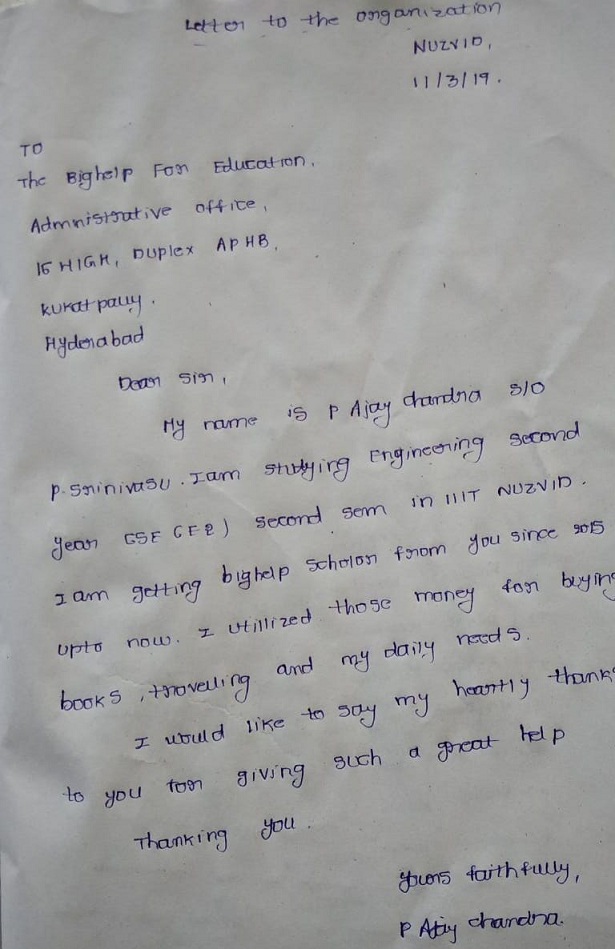 Letter to the organization
NUZVID,
11/3/19.
TO
The Bighelp For Education.
Admnistrative office,
15 HIGH, Duplex APHB,
kukatpally.
Hyderabad
Dear sir,
My name is P Ajay chandra S/O
P. Srinivasu. I am studying Engineering second
year CSE (E2) second sem in IIIT NUZVID.
I am getting bighelp scholor from you since 2015
upto now. I utillized those money for buying
books, travelling and my daily needs.
I would like to say my heartly thanks
to you for giving such a great help
Thanking you.
yours faithfully,
P Ajay chandra.